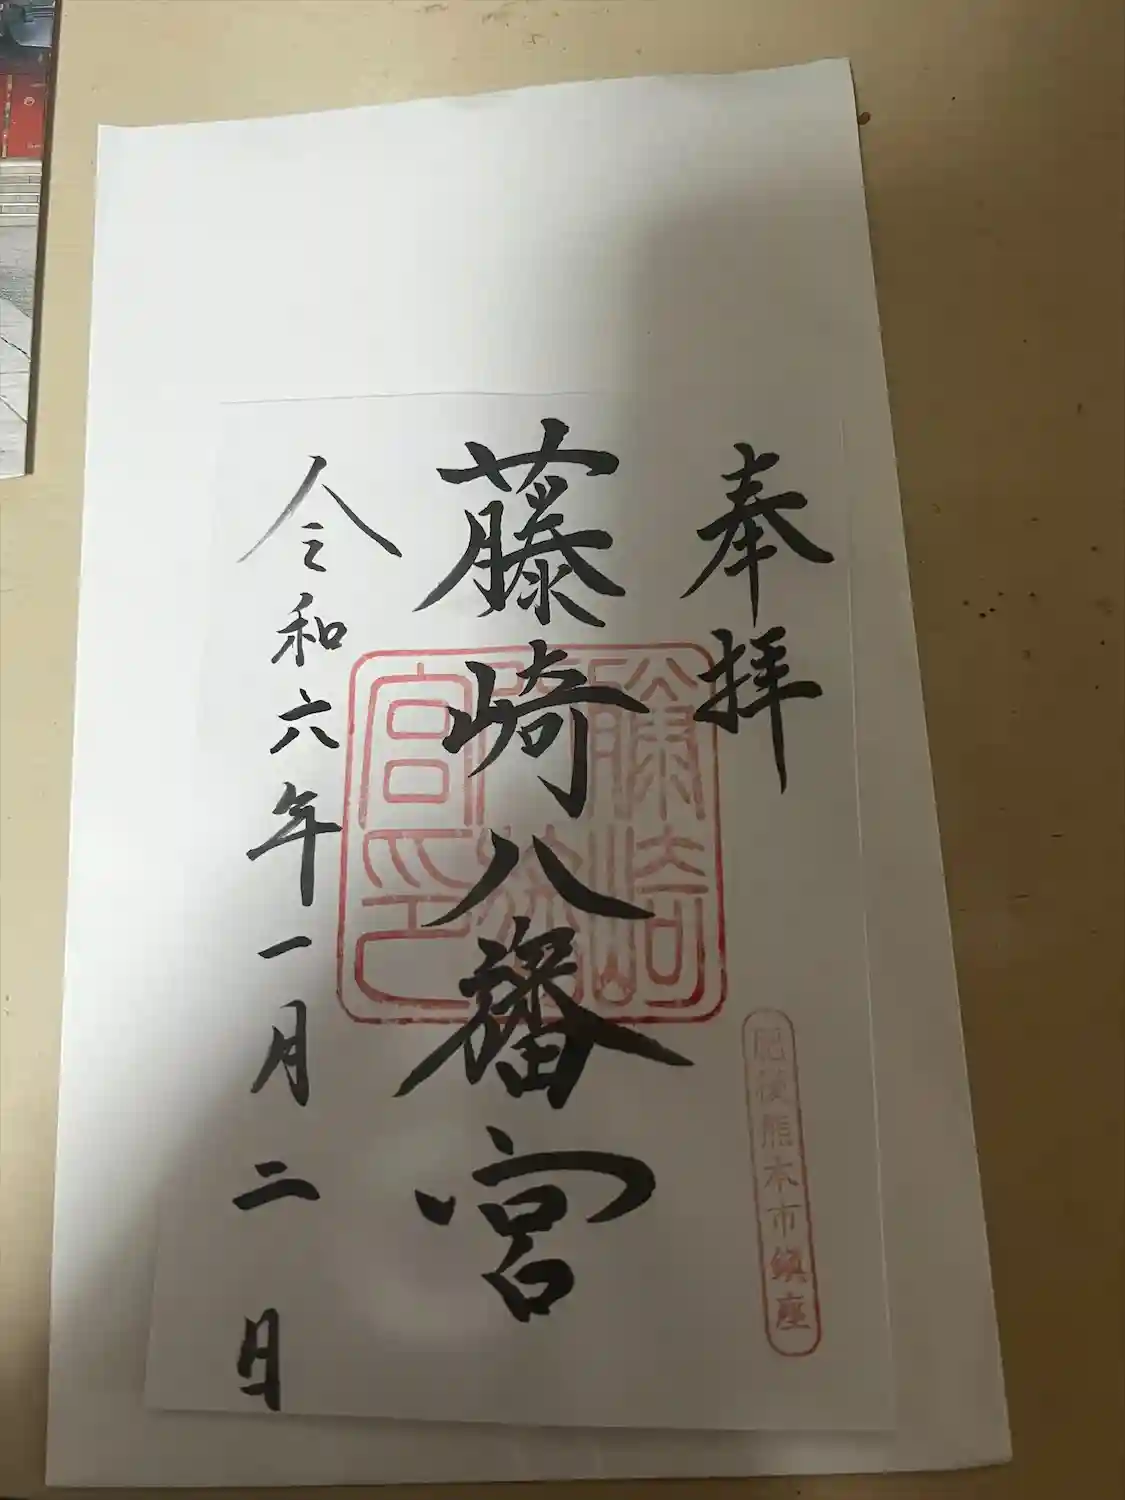 奉拝
肥後熊本市鎮座
藤崎八旛宮
藤崎
宮印
令和六年一月二日